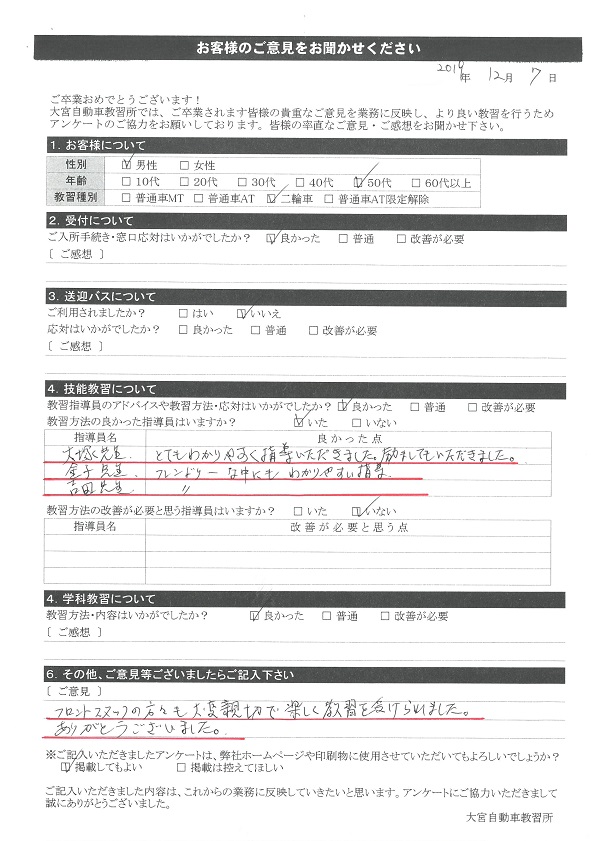 お客様のご意見をお聞かせください
2019年 12月 7日
ご卒業おめでとうございます！
大宮自動車教習所では、ご卒業されます皆様の貴重なご意見を業務に反映し、より良い教習を行うため
アンケートのご協力をお願いしております。皆様の率直なご意見・ご感想をお聞かせ下さい。
1. お客様について
性別 ☑男性 □女性
年齢 □10代 □20代 □30代 □40代 ☑50代 □60代以上
教習種別 □普通車MT □普通車AT ☑二輪車 □普通車AT限定解除
2. 受付について
ご入所手続き・窓口応対はいかがでしたか？ ☑良かった □普通 □改善が必要
〔 ご感想 〕
3. 送迎バスについて
ご利用されましたか？ □はい ☑いいえ
応対はいかがでしたか？ □良かった □普通 □改善が必要
〔 ご感想 〕
4. 技能教習について
教習指導員のアドバイスや教習方法・応対はいかがでしたか？ ☑良かった □普通 □改善が必要
教習方法の良かった指導員はいますか？ ☑いた □いない
指導員名 良かった点
大塚先生. とてもわかりやすく指導いただきました。励ましてもいただきました。
金子先生. フレンドリーな中にもわかりやすい指導.
吉田先生 〃
教習方法の改善が必要と思う指導員はいますか？ □いた ☑いない
指導員名 改善が必要と思う点
4. 学科教習について
教習方法・内容はいかがでしたか？ ☑良かった □普通 □改善が必要
〔 ご感想 〕
6. その他、ご意見等ございましたらご記入下さい
〔 ご意見 〕
フロントスタッフの方々も大変親切で楽しく教習を受けられました。
ありがとうございました。
※ご記入いただきましたアンケートは、弊社ホームページや印刷物に使用させていただいてもよろしいでしょうか？
☑掲載してもよい □掲載は控えてほしい
ご記入いただきました内容は、これからの業務に反映していきたいと思います。アンケートにご協力いただきまして
誠にありがとうございました。
大宮自動車教習所